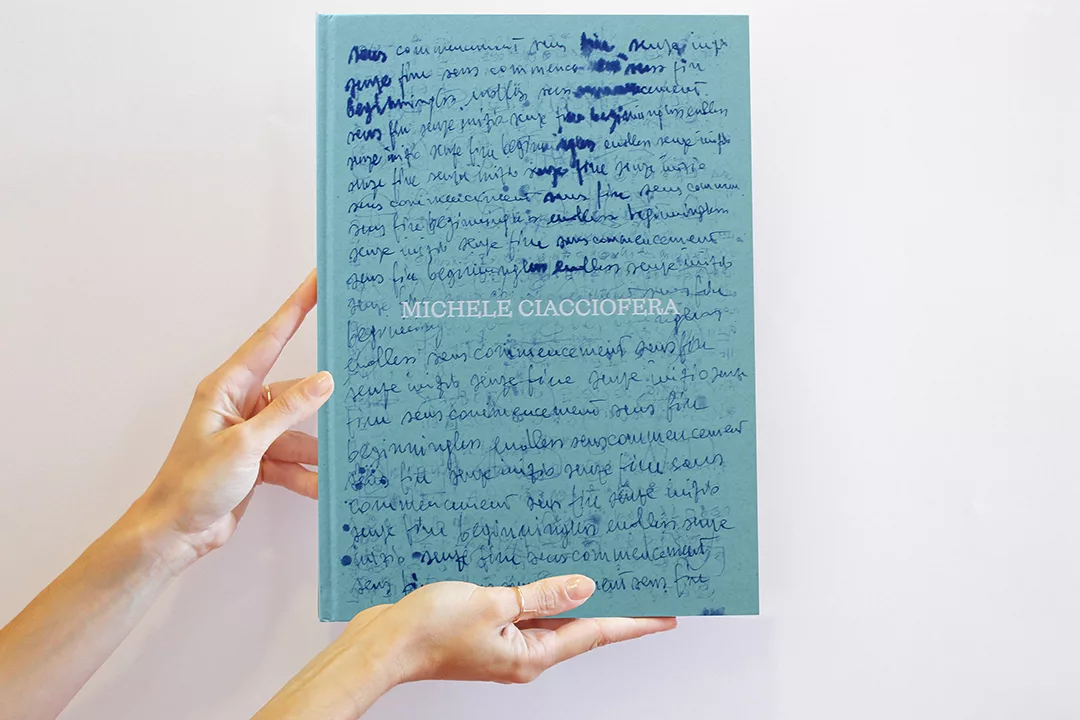 sens commencement sens fin senza iniz
senza fine sens commence sens fin
beginningless endless sens commencement
sens fin senza inizio senza fine beginningless endless
senza inizio senza fine beginningless endless senza inizio
senza fine senza inizio senza fine senza inizio
sens commencement sens fine sens commen
sens fin beginningless endless beginningless
senza inizio senza fine sens commencement
sens fin beginningless endless senza inizio
senza sens fine
MICHELE CIACCIOFERA
endless sens commencement sens fin
senza inizio senza fine senza inizio senza
fine sens commencement sens fin
beginningless endless sens commencement
fin senza inizio senza fine sans
commencement sens fin senza inizio
senza fine beginningless endless senza
inizio senza fine sens commencement
sens sens fin